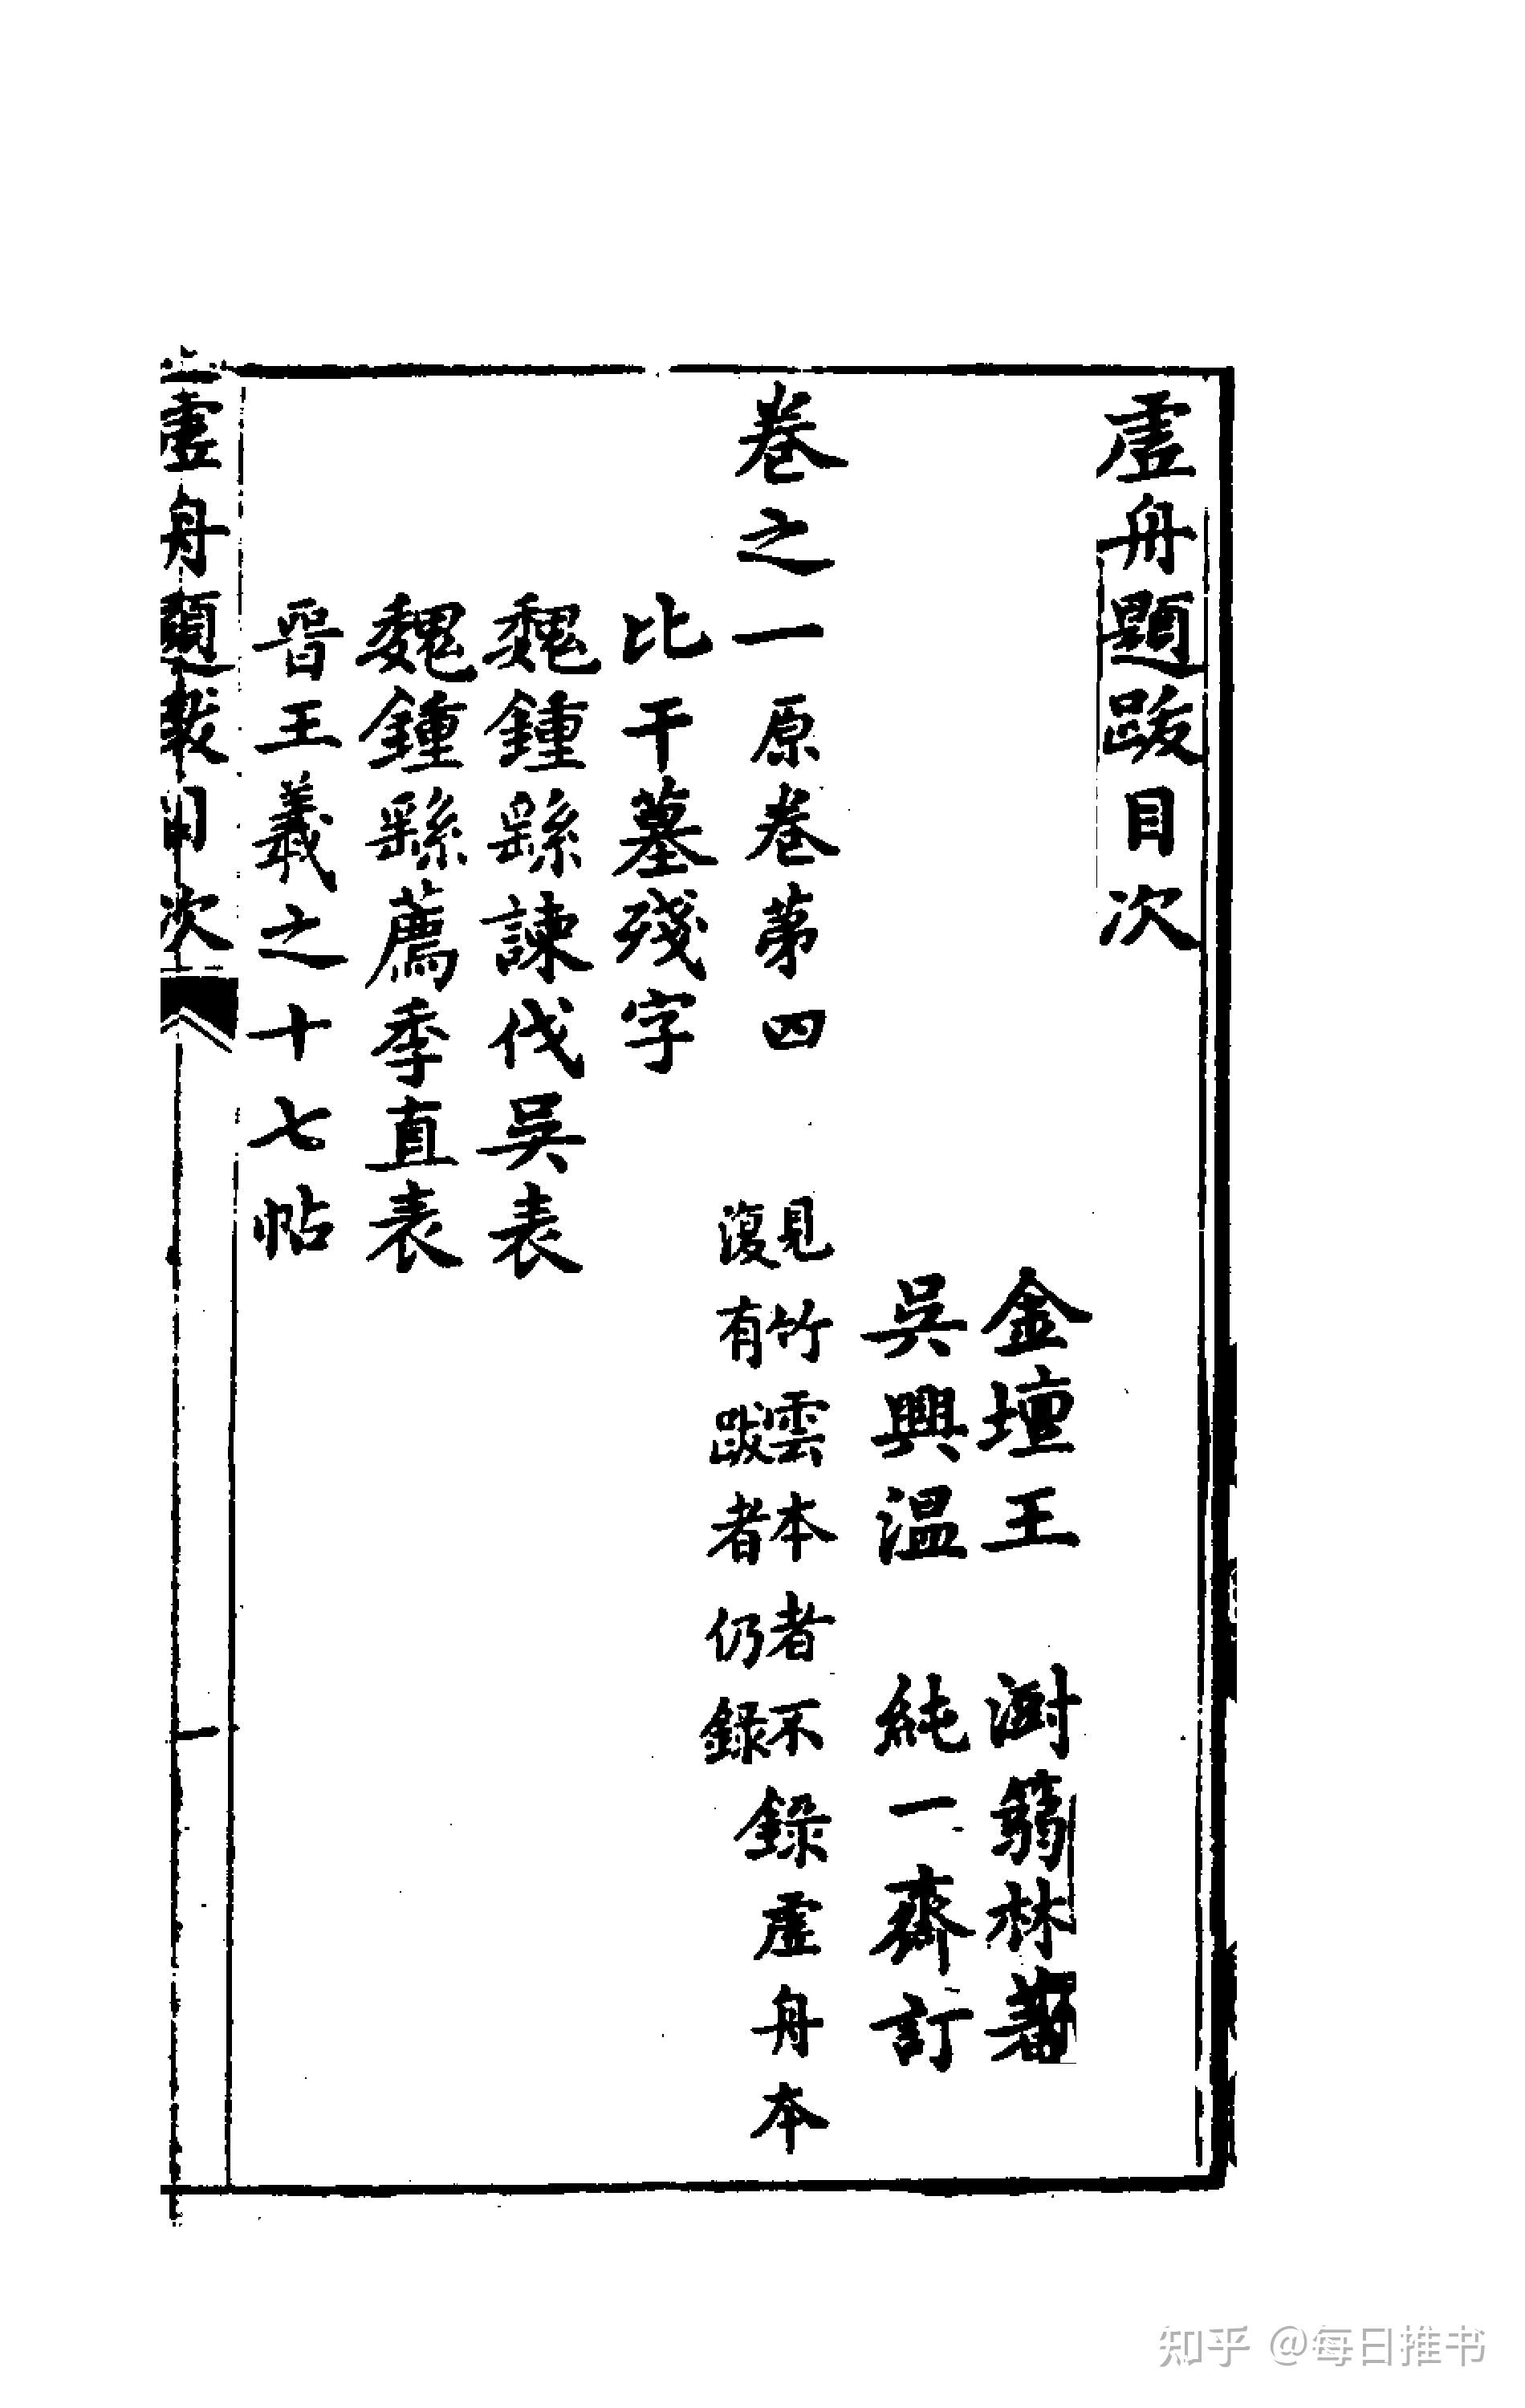 虛舟題跋目次
金壇王　澍篛林著
吳興温　純一齋訂
卷之一原卷第四　見竹雲本者不錄虛舟本
復有跋者仍錄
比干墓殘字
魏鍾繇諫伐吳表
魏鍾繇薦季直表
晉王羲之十七帖
虛舟題跋目次
一
知乎 @每日推书